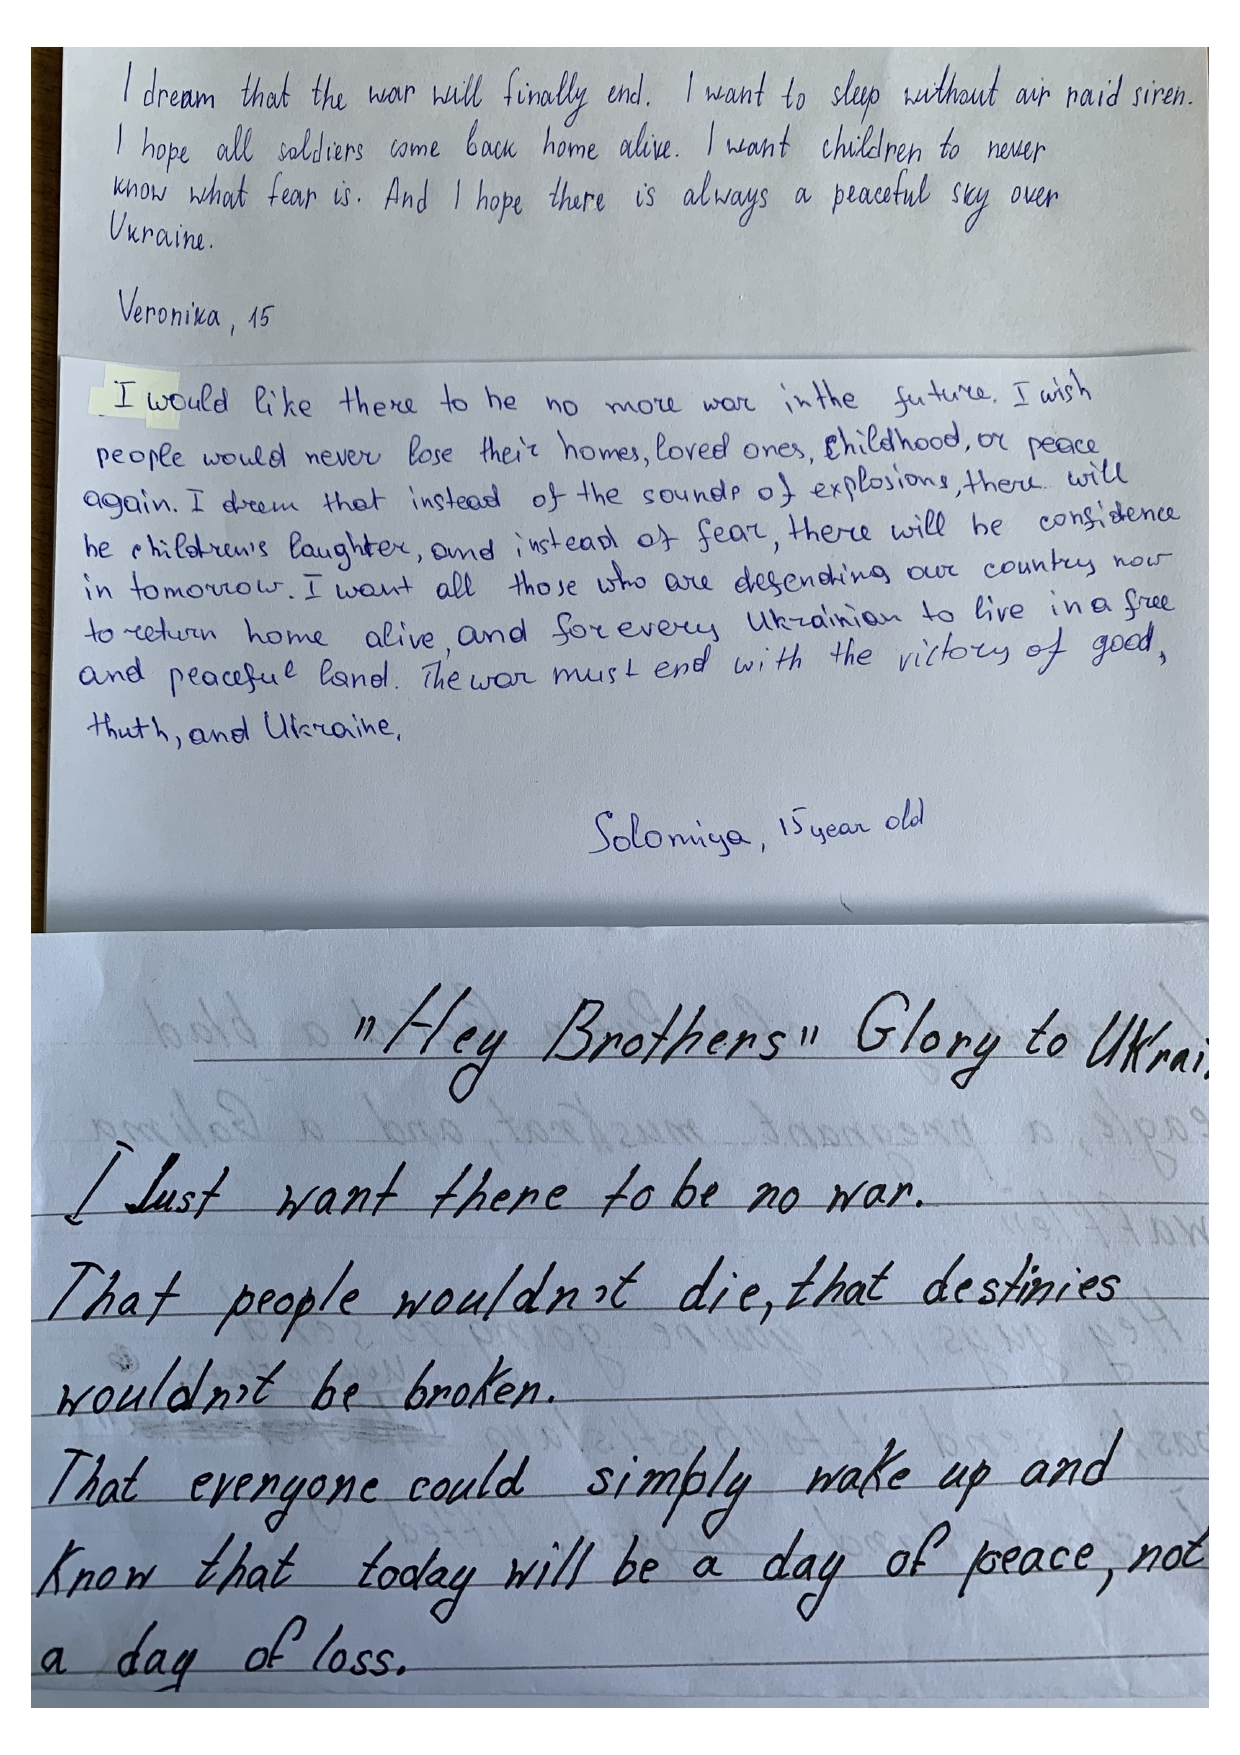 I dream that the war will finally end. I want to sleep without air raid siren.
I hope all soldiers come back home alive. I want children to never
know what fear is. And I hope there is always a peaceful sky over
Ukraine.
Veronika, 15
I would like there to be no more war inthe future. I wish
people would never lose their homes, loved ones, childhood, or peace
again. I dreem that instead of the sounds of explosions, there will
be children's laughter, and instead of fear, there will be confidence
in tomorrow. I want all those who are defending our country now
to return home alive, and for every Ukrainian to live in a free
and peaceful land. The war must end with the victory of good,
thuth, and Ukraine.
Solomiya, 15 year old
"Hey Brothers" Glory to Ukrai
I Just want there to be no war.
That people wouldn't die, that destinies
wouldn't be broken.
That everyone could simply wake up and
know that today will be a day of peace, not
a day of loss.